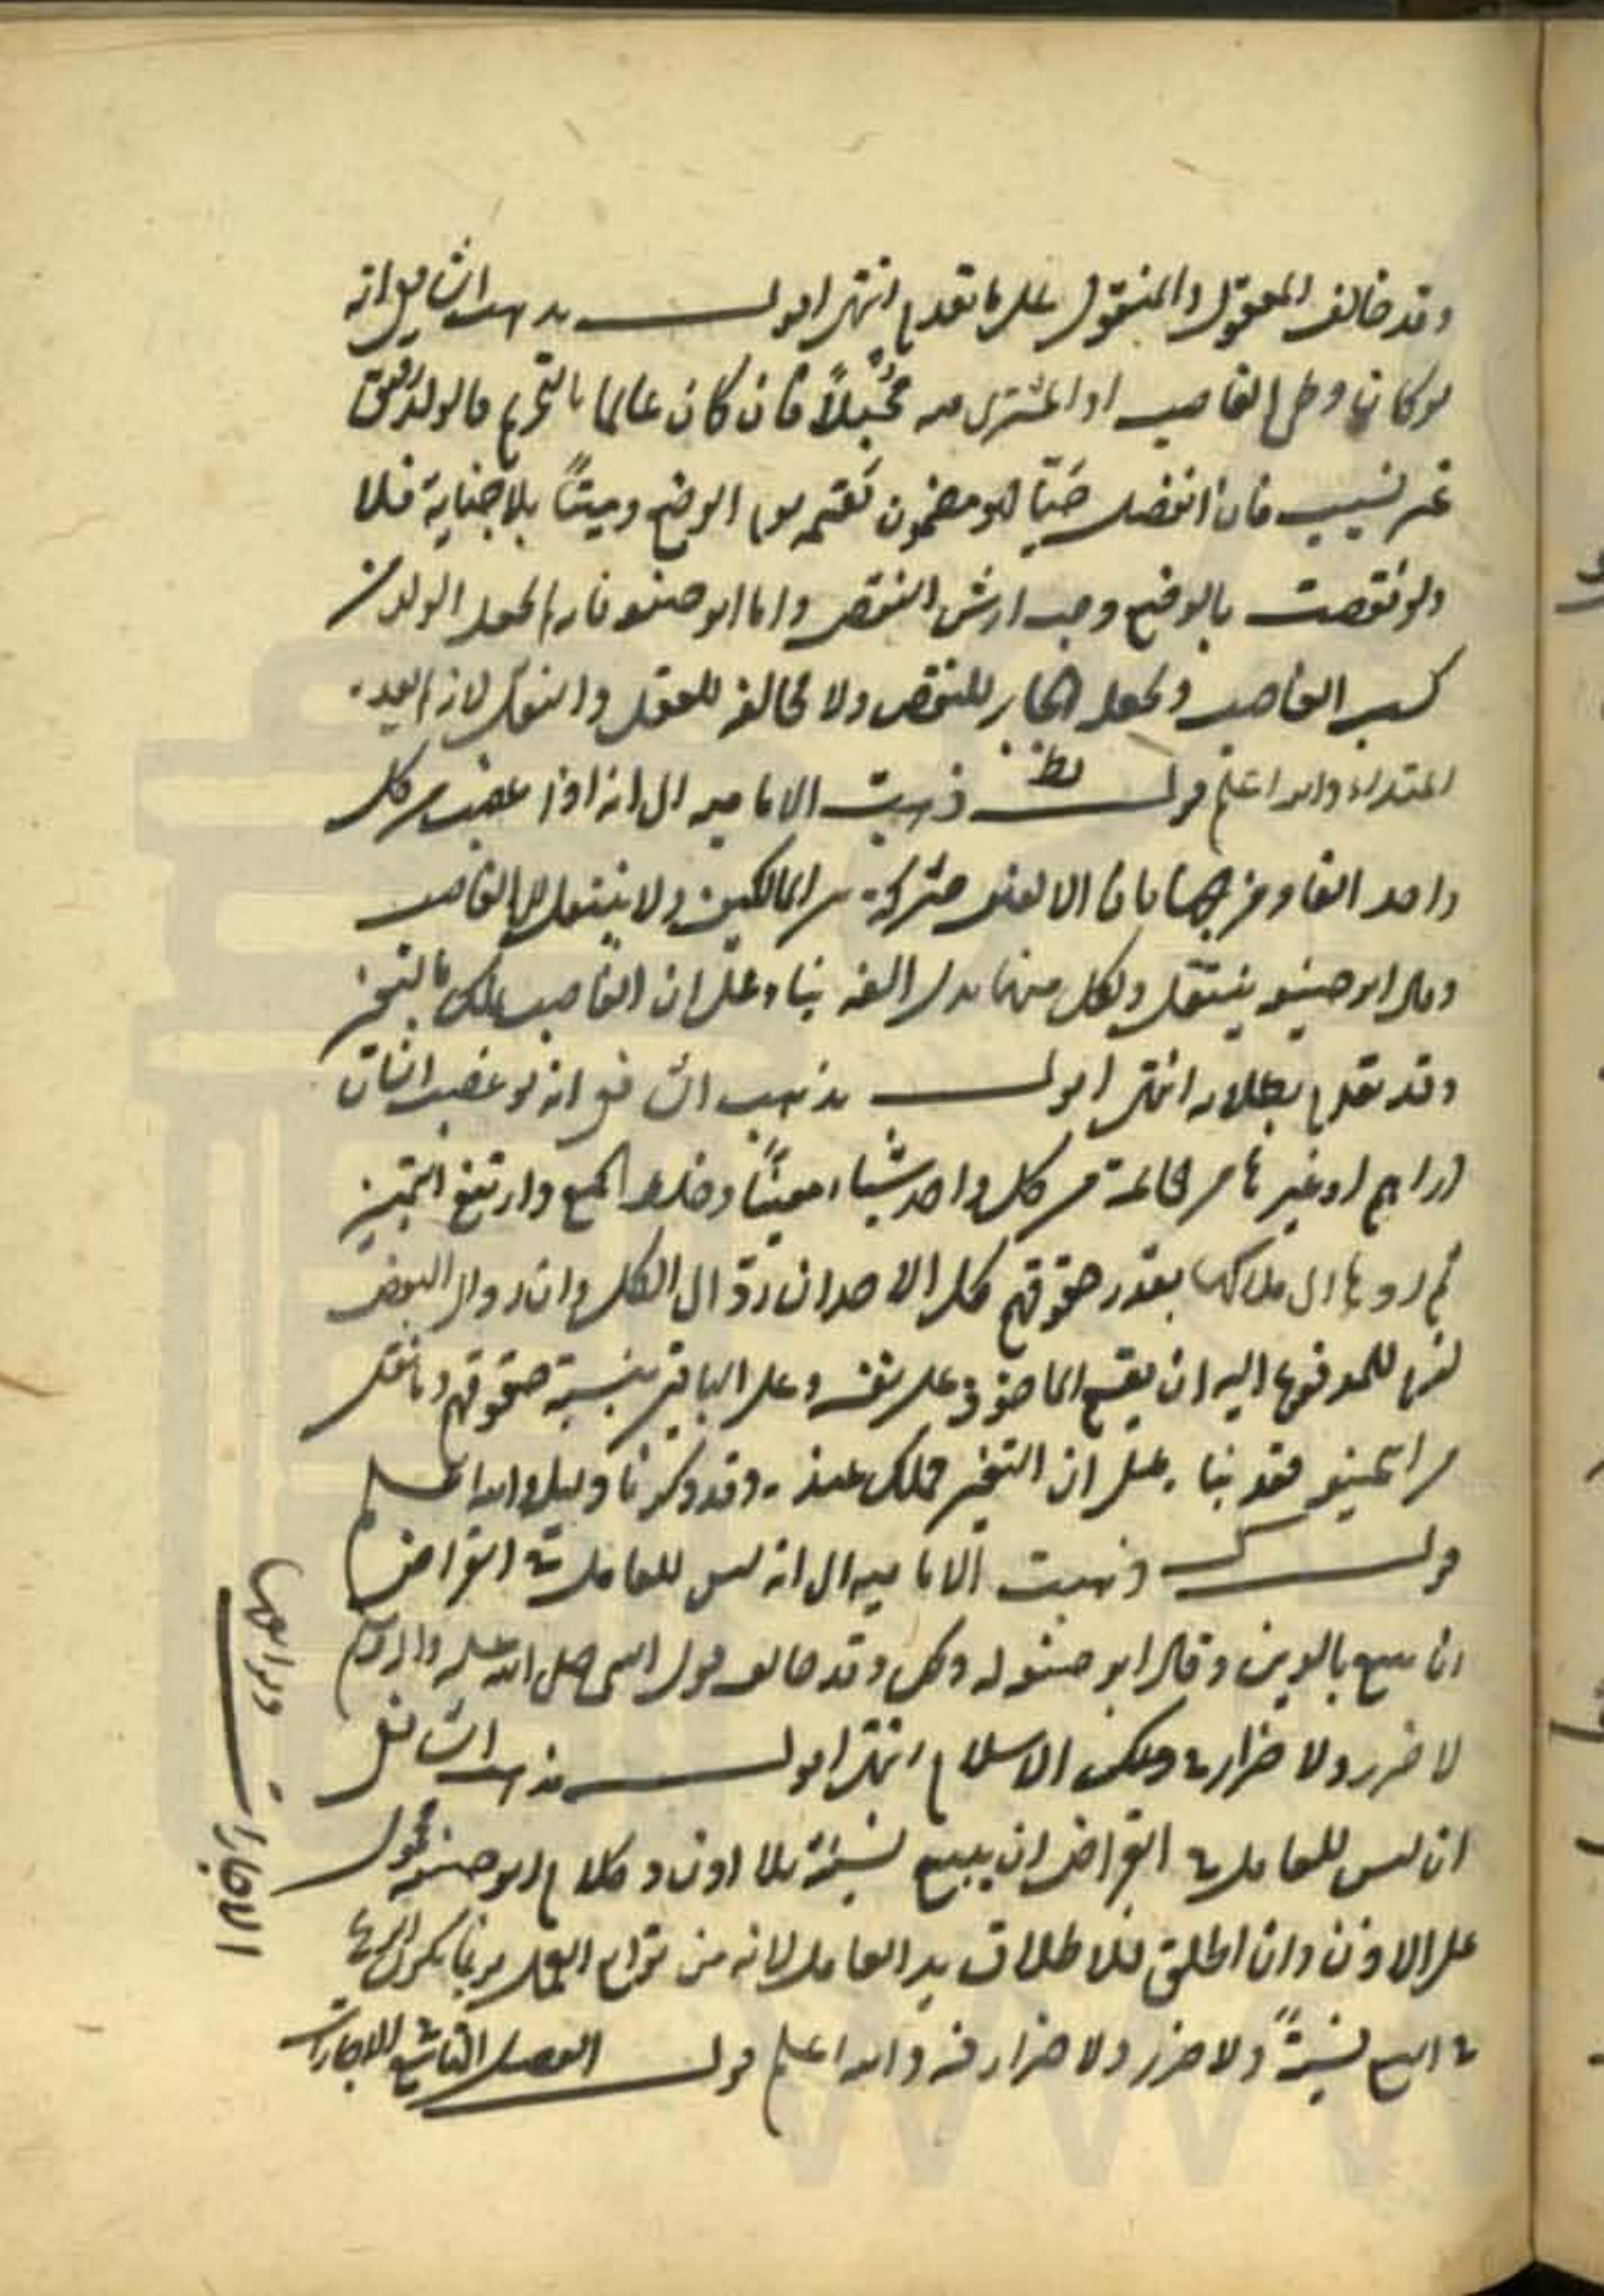 وقد خالف المعقول والمنقول على ما تقدم انتهى اقول مذهب الشافعي انه
لو كان وطى الغاصب او المشترى منه محبلاً فان كان عالما بالتحريم فالولد رقيق
غير نسيب فان انفصل حيّا فهو مضمون بقيمته يوم الوضع وميتاً بلا جناية فلا
ولو نقصت بالوضع وجب ارش النقص واما ابو حنيفه فانه يجعل الولد من
كسب الغاصب ويجعل الجابر للنقص ولا مخالفه للعقل والنقل
والله اعلم قوله نط ذهبت الاماميه الى انه اذا غصب من كل
واحد الفا ومزجهما بان الالفين مشتركة بين المالكين ولا ينتقل الى الغاصب
وقال ابو حنيفه ينتقل ولكل منهما بدل الفه بناء على ان الغاصب يملك بالتغير
وقد تقدم بطلانه انتهى اقول مذهب الشافعي انه لو غصب انسان
دراهم او غيرها من جماعة من كل واحد شيئاً معيناً وخلط الجميع وارتفع التمييز
ثم ردها الى ملاكها بقدر حقوقهم حل لكل الاخذ ان ردّ الى الكل وان رد الى البعض
لزم للمدفوع اليه ان يقسم الماخوذ على نفسه وعلى الباقين بنسبة حقوقهم وما نقل
من ابي حنيفه فقد بناه على ان التغير مملك عنده وقد ذكرنا دليله والله اعلم
قوله س ذهبت الاماميه الى انه ليس للعامل في القراض
ان يبيع بالدين وقال ابو حنيفه له ذلك وقد خالف قول النبي صلى الله عليه واله وسلم
لا ضرر ولا ضرار في ملك الاسلام انتهى اقول مذهب الشافعي
ان ليس للعامل في القراض ان يبيع نسيئة بلا اذن وكلام ابو حنيفه محمول
على الاذن وان اطلق فلاطلاق يد العامل لانه من توابع العمل
في البيع نسيئةً ولا ضرر ولا ضرار فيه والله اعلم قوله الفصل التاسع في الاجارات
الاجارات